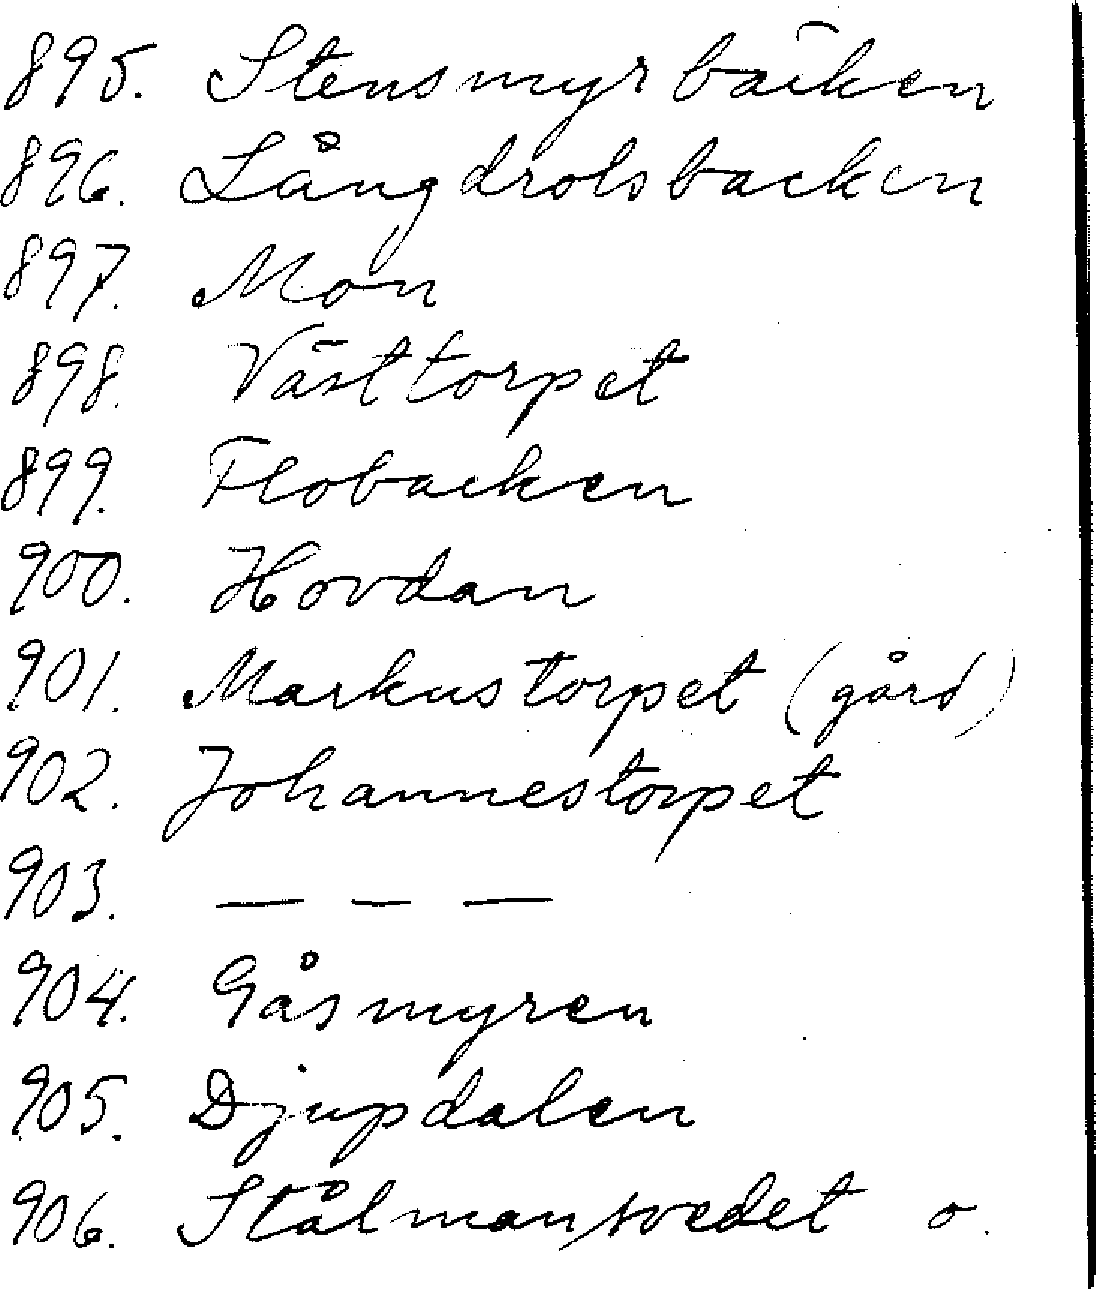 895. Stensmyrbäcken
896. Långdrolsbacken
897. Mon
898. Västtorpet
899. Flobacken
900. Hovdan
901. Markustorpet (gård)
902. Johannestorpet
903. — – —
904. Gåsmyren
905. Djupdalen
906. Stålmansvedet o.